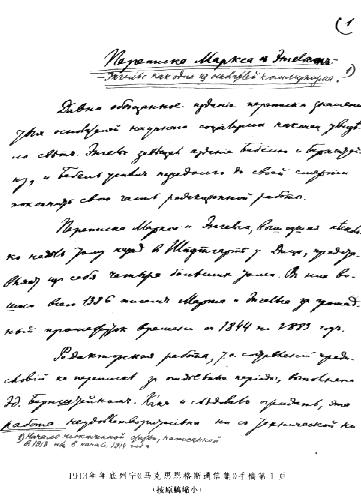 1
Переписка Маркса и Энгельса.
Энгельс как один из основателей коммунизма. 1)
Давно обещанное издание переписки знамени-
тых основателей научного социализма наконец увиде-
ло свет. Энгельс завещал издание Бебелю и Бернштей-
ну, и Бебель успел незадолго до своей смерти
закончить свою часть редакционной работы.
Переписка Маркса и Энгельса, вышедшая несколь-
ко недель тому назад в Штутгарте у Дица, предста-
вляет из себя четыре больших тома. В них во-
шло всего 1386 писем Маркса и Энгельса за громад-
ный промежуток времени с 1844 по 1883 год.
Редакторская работа, т.е. составление преди-
словий к переписке за отдельные периоды, выполнена
Эд. Бернштейном. Как и следовало ожидать, эта
работа неудовлетворительна ни с технической ни
1) Начало неоконченной статьи, написанной
в 1913 или в начале 1914 года
1913年年底列宁《马克思恩格斯通信集》手稿第1页
(按原稿缩小)